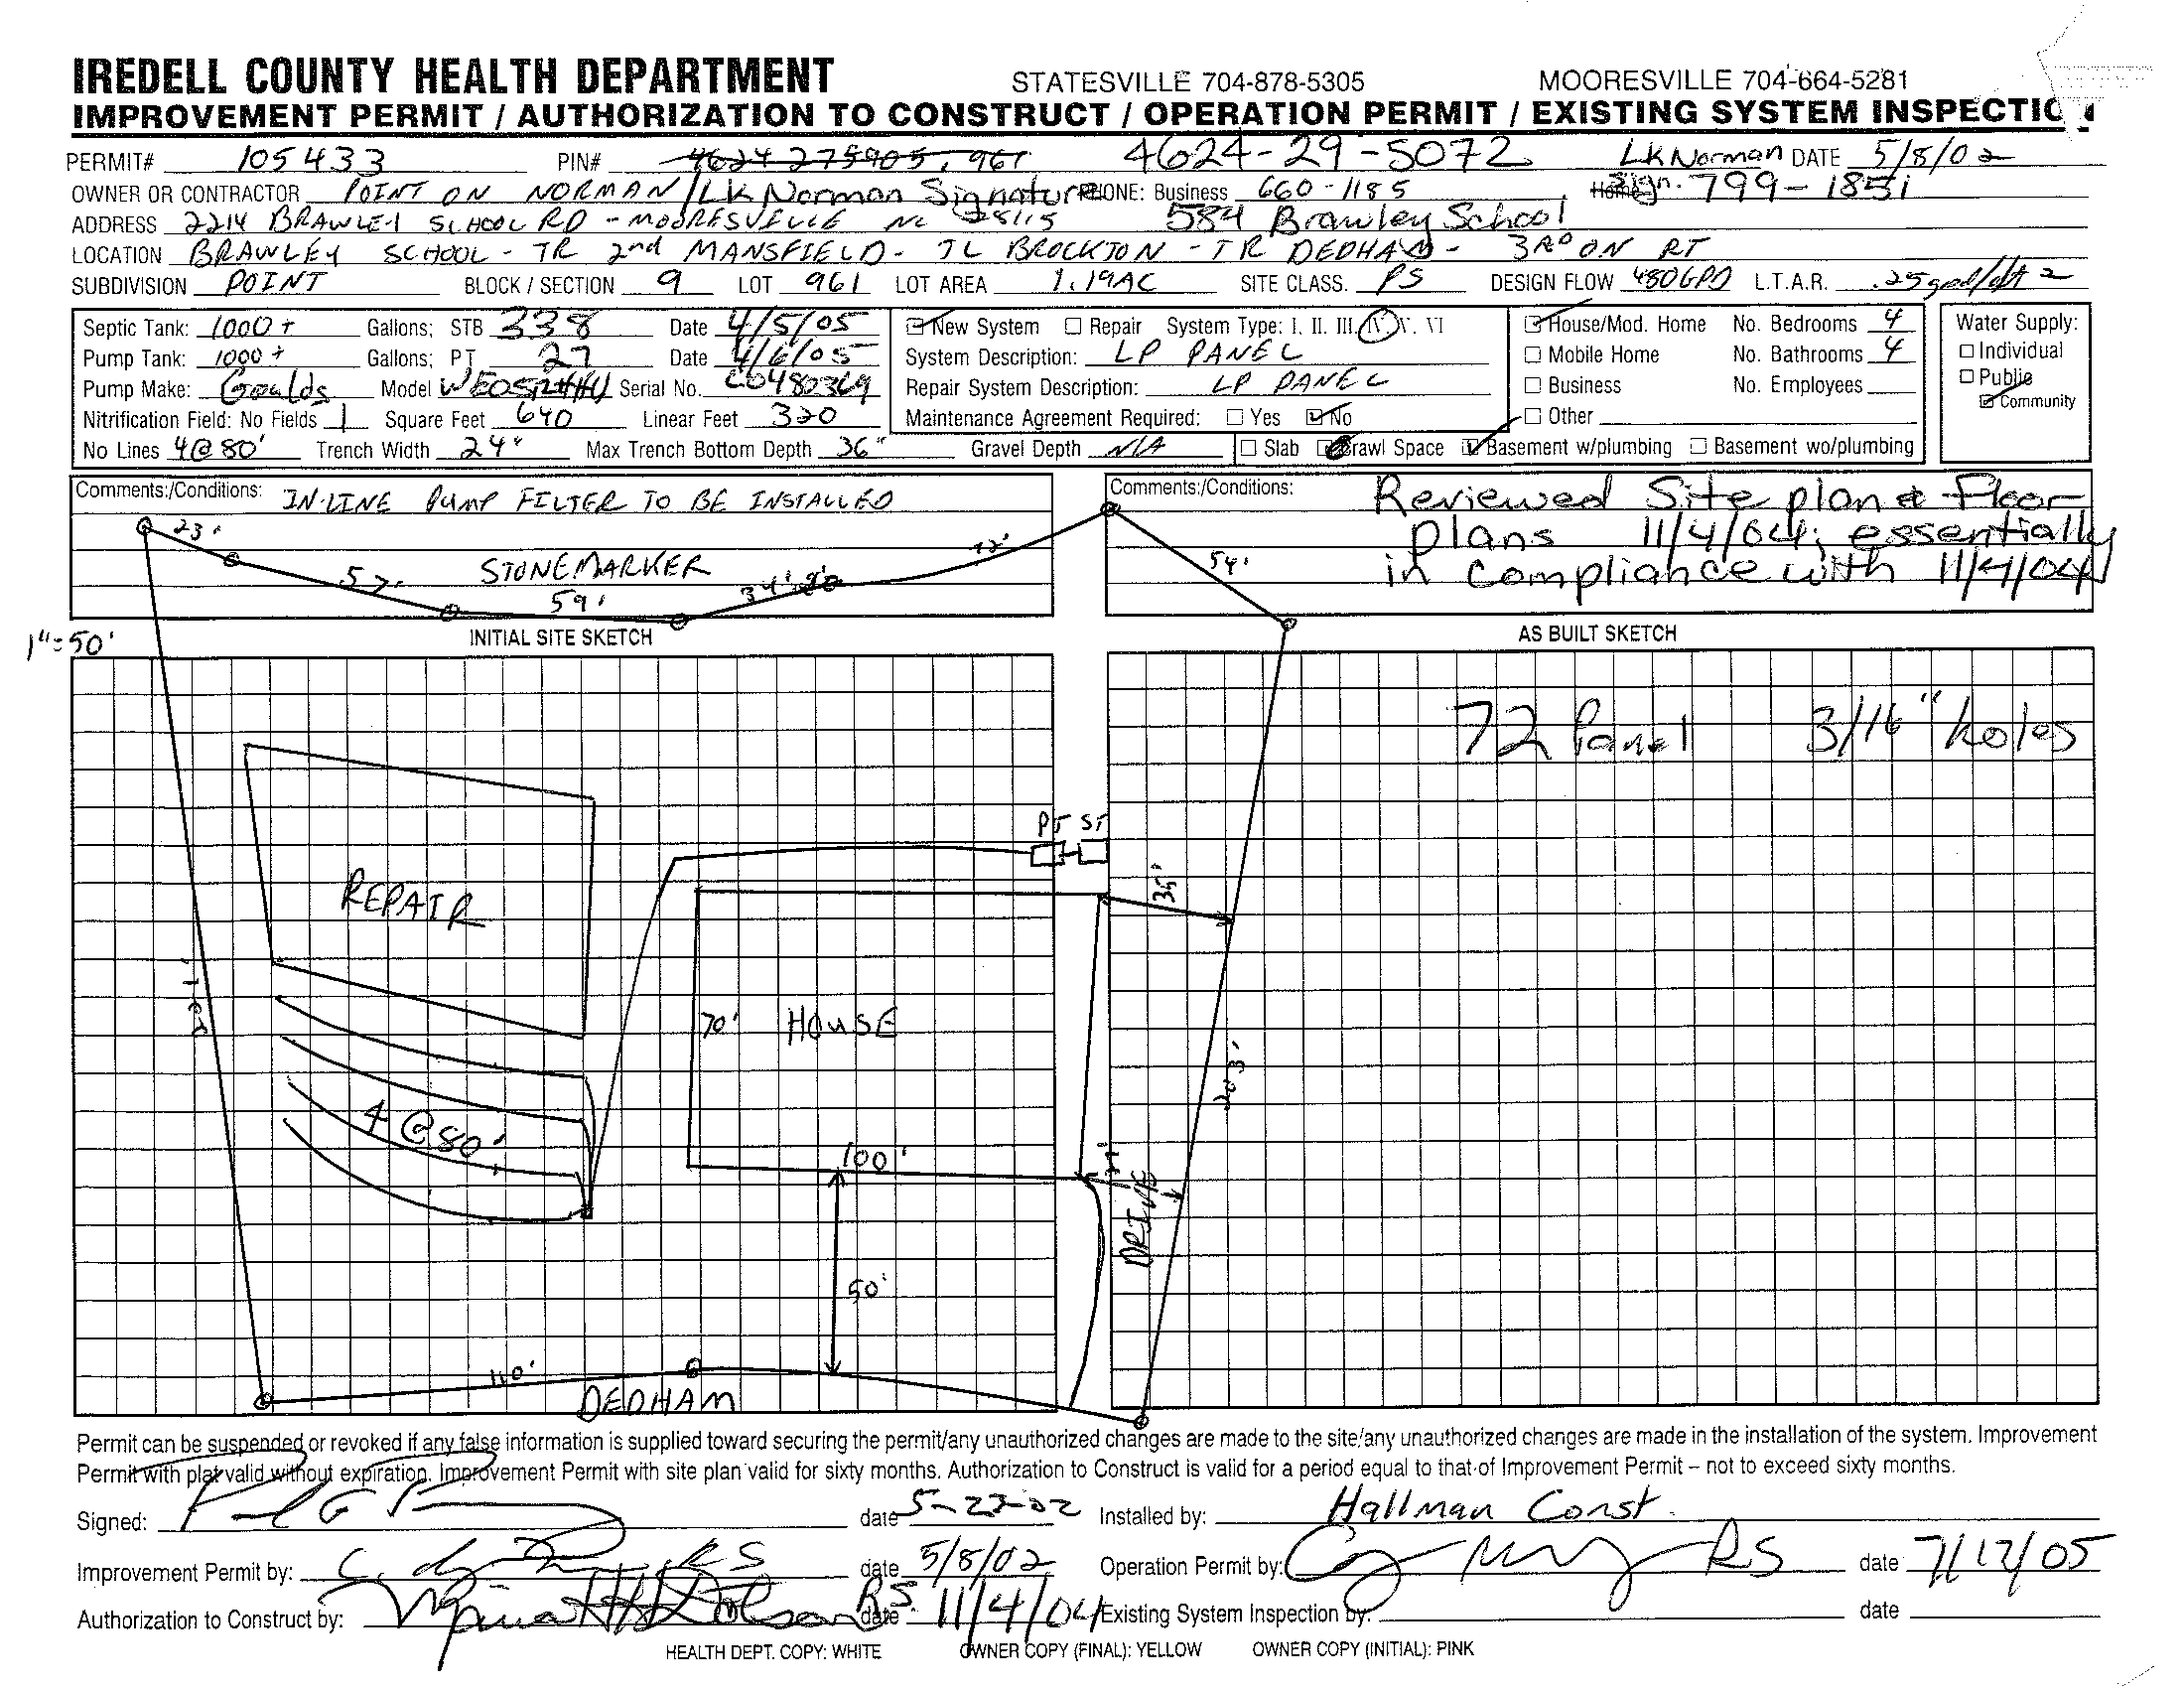 IREDELL COUNTY HEALTH DEPARTMENT STATESVILLE 704-878-5305 MOORESVILLE 704-664-5281
IMPROVEMENT PERMIT / AUTHORIZATION TO CONSTRUCT / OPERATION PERMIT / EXISTING SYSTEM INSPECTIO
PERMIT# 105433 PIN# 4624 275905.961 4624-29-5072 LK Norman DATE 5/8/02
OWNER OR CONTRACTOR POINT ON NORMAN/LK Norman Signature PHONE: Business 660-1185 Home Sign. 799-1851
ADDRESS 2214 BRAWLEY SCHOOL RD - MOORESVILLE NC 28115 584 Brawley School
LOCATION BRAWLEY SCHOOL - TR 2nd MANSFIELD - TL BROCKTON - TR DEDHAM - 3RD ON RT
SUBDIVISION POINT BLOCK / SECTION 9 LOT 961 LOT AREA 1.19AC SITE CLASS. PS DESIGN FLOW 480GPD L.T.A.R. .25 gal/ft2
Septic Tank: 1000+ Gallons; STB 338 Date 4/5/05 New System Repair System Type: I. II. III. IV. V. VI House/Mod. Home No. Bedrooms 4 Water Supply:
Pump Tank: 1000+ Gallons; PT 27 Date 4/6/05 System Description: LP PANEL Mobile Home No. Bathrooms 4 Individual
Pump Make: Goulds Model Serial No. Repair System Description: LP PANEL Business No. Employees Public
Community
Nitrification Field: No Fields 1 Square Feet 640 Linear Feet 320 Maintenance Agreement Required: Yes No Other
No Lines 4@80' Trench Width 24" Max Trench Bottom Depth 36" Gravel Depth N/A Slab Crawl Space Basement w/plumbing Basement wo/plumbing
Comments:/Conditions: IN-LINE PUMP FILTER TO BE INSTALLED
Comments:/Conditions: Reviewed Site plan & Floor
plans 11/4/04; essentially
in compliance with 11/4/04
23'
57'
STONEMARKER
59'
34'
72'
54'
1"=50'
INITIAL SITE SKETCH AS BUILT SKETCH
72 Panel 3/16" holes
PT ST
35'
REPAIR
70' HOUSE
203'
4 @ 80'
100'
DRIVE
50'
110'
DEDHAM
Permit can be suspended or revoked if any false information is supplied toward securing the permit/any unauthorized changes are made to the site/any unauthorized changes are made in the installation of the system. Improvement
Permit with plat valid without expiration. Improvement Permit with site plan valid for sixty months. Authorization to Construct is valid for a period equal to that of Improvement Permit – not to exceed sixty months.
Signed: date 5-23-02 Installed by: Hallman Const.
Improvement Permit by: RS date 5/8/02 Operation Permit by: RS date 7/12/05
Authorization to Construct by: RS. date 11/4/04 Existing System Inspection by: date
HEALTH DEPT. COPY: WHITE OWNER COPY (FINAL): YELLOW OWNER COPY (INITIAL): PINK